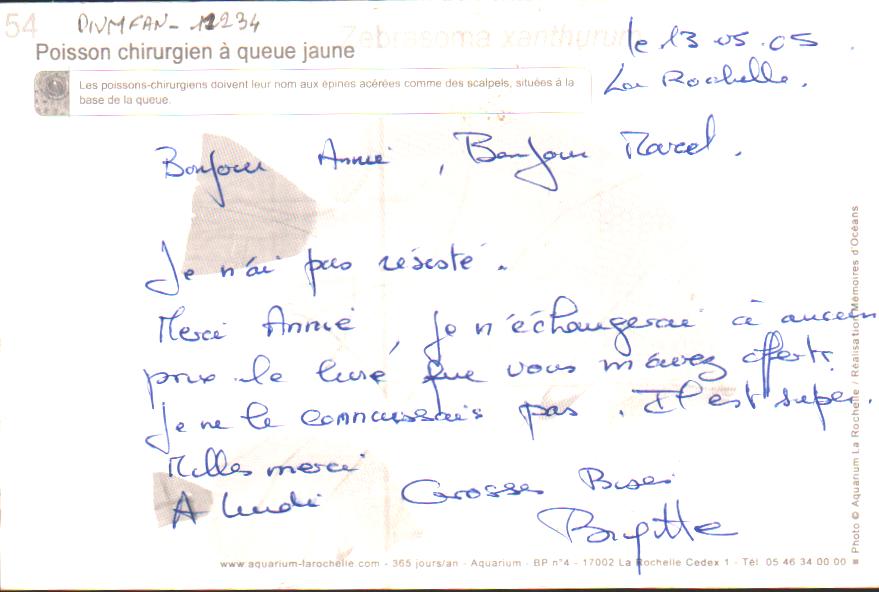 54 DIVMFAN - 12234
Zebrasoma xanthurum
Poisson chirurgien à queue jaune
Les poissons-chirurgiens doivent leur nom aux épines acérées comme des scalpels, situées à la
base de la queue.
le 13 05.05
La Rochelle.
Bonjour Annie, Bonjour Marcel.
Je n'ai pas résisté.
Merci Annie, je n'échangerai à aucun
prix le livre que vous m'avez offert.
Je ne le connaissais pas. Il est super.
Milles merci
A lundi Grosses Bises
Brigitte
www.aquarium-larochelle.com - 365 jours/an - Aquarium - BP n°4 - 17002 La Rochelle Cedex 1 - Tél 05 46 34 00 00
Photo © Aquarium La Rochelle / Réalisation Mémoires d'Océans